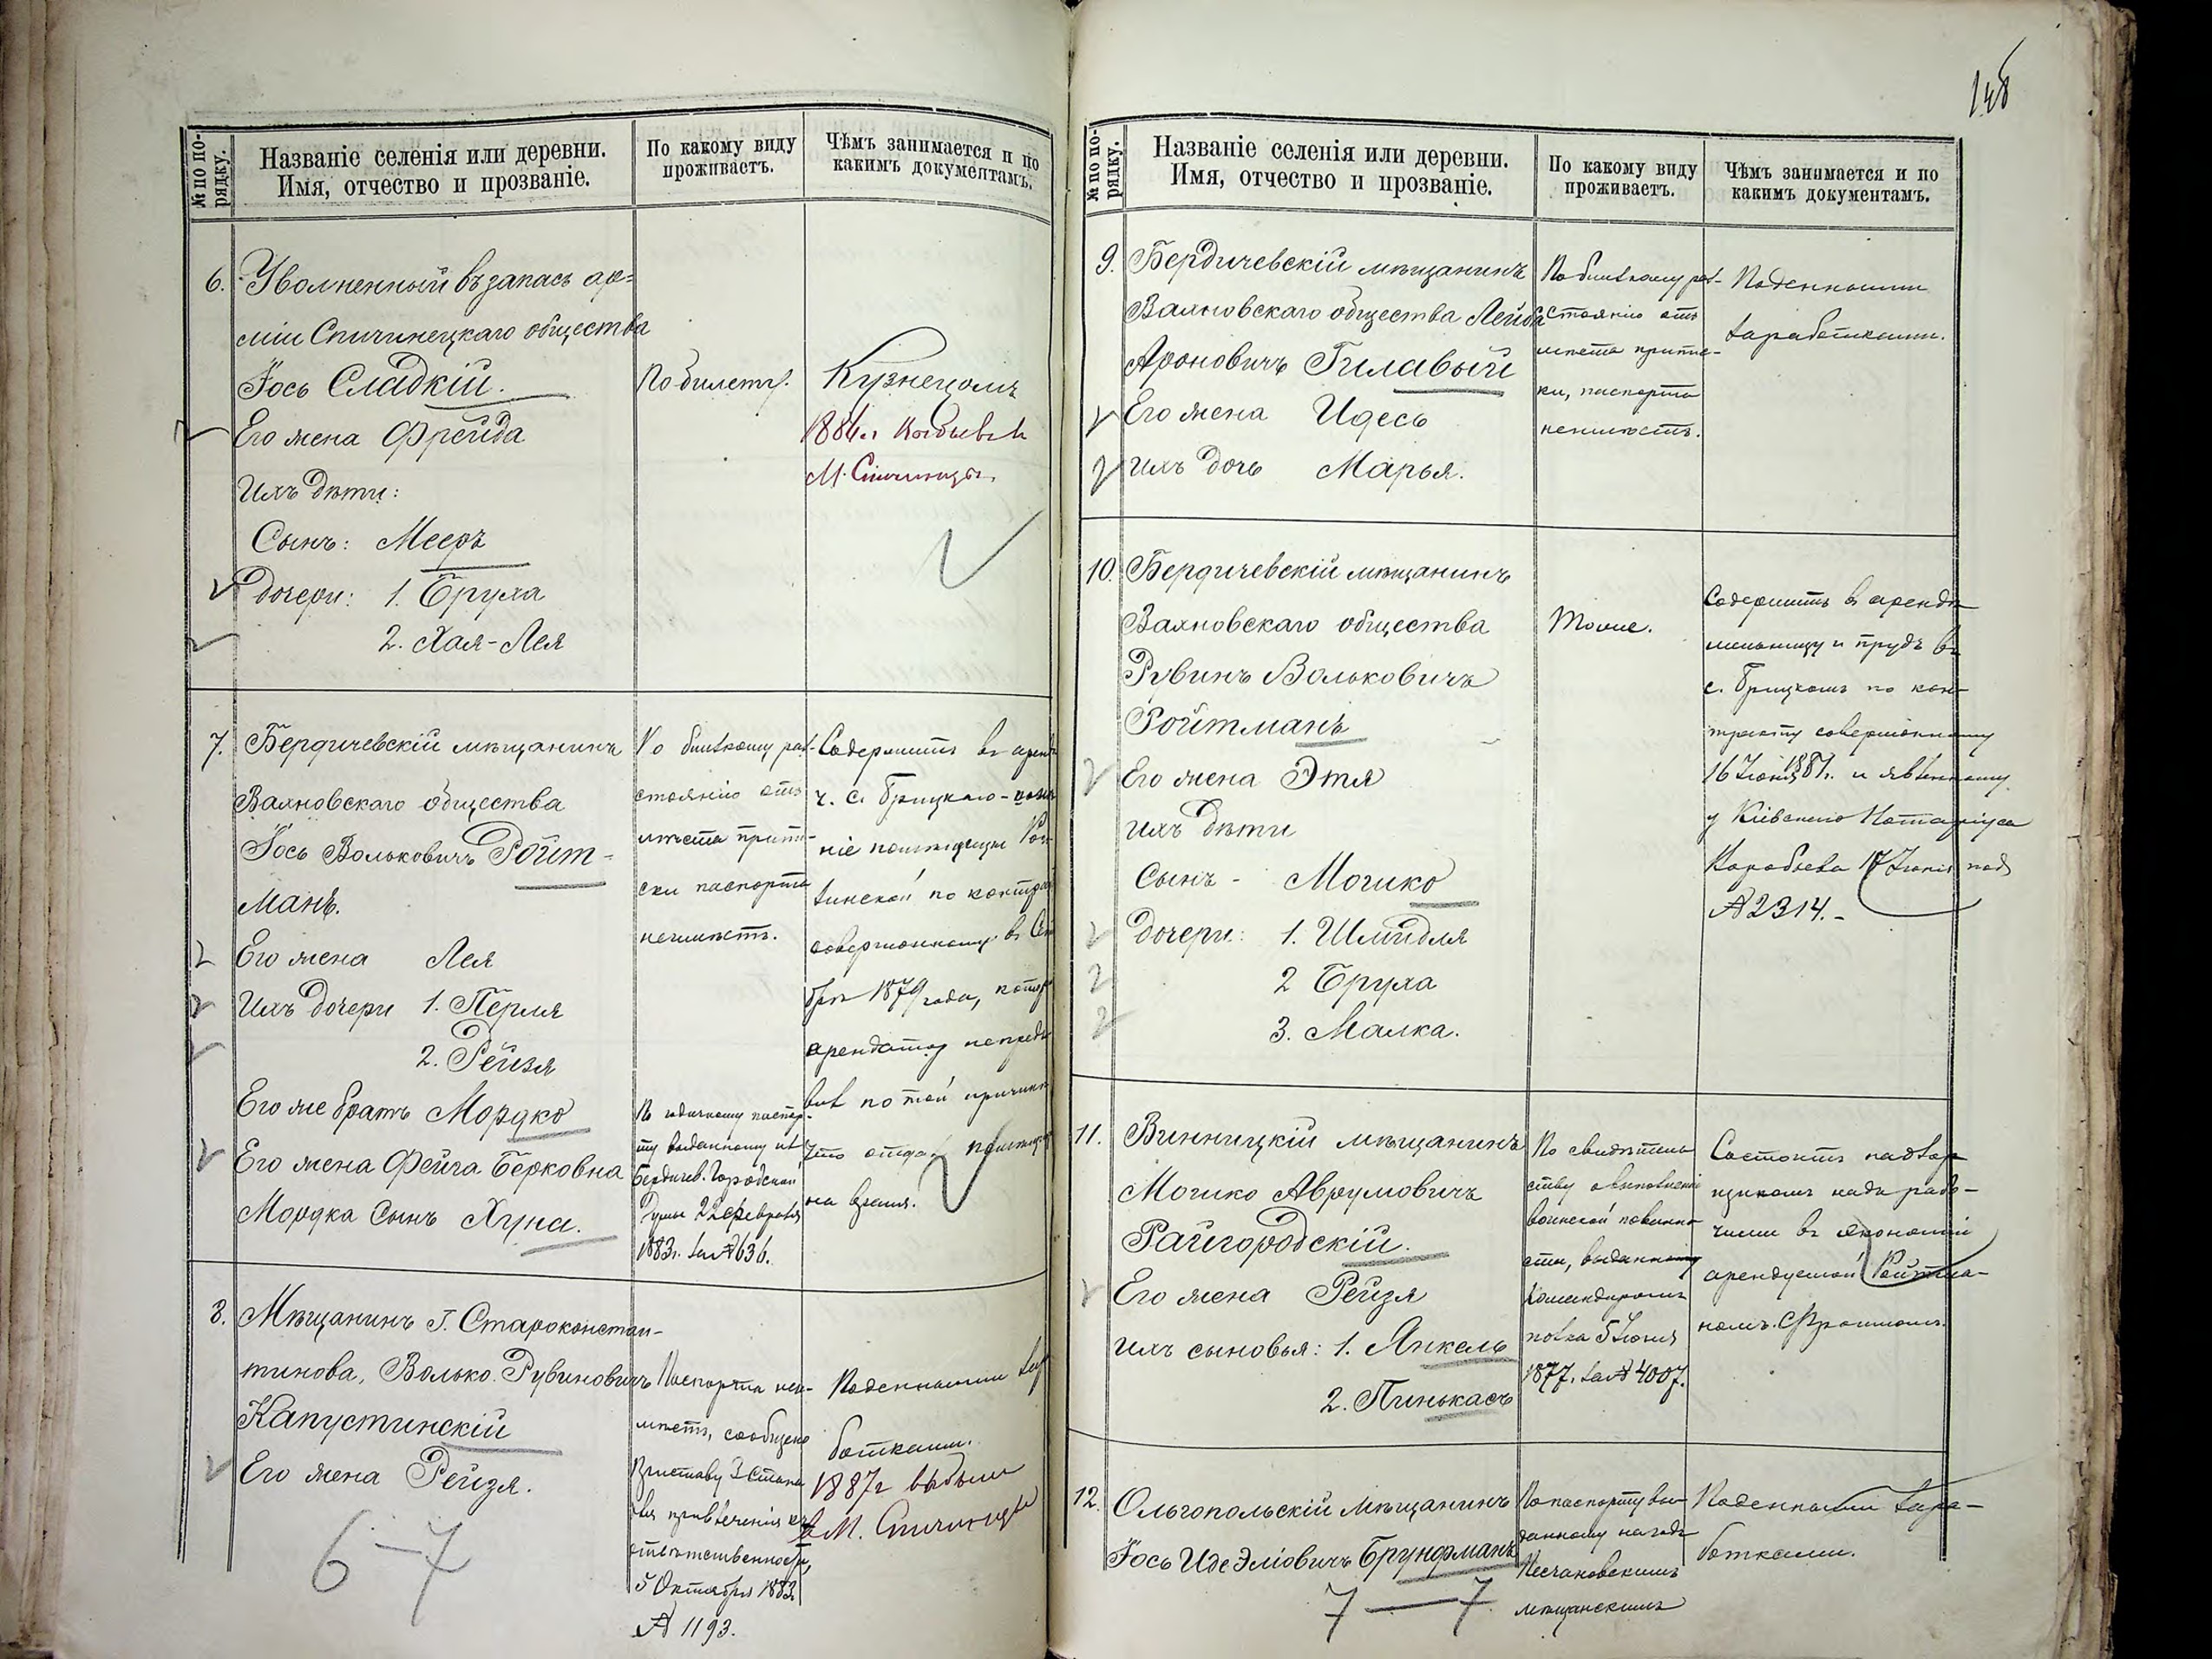 № по порядку.
Названіе селенія или деревни.
Имя, отчество и прозваніе.
По какому виду
проживаетъ.
Чѣмъ занимается и по
какимъ документамъ.
6.
Уволненный въ запасъ ар=
міи Спичинецкаго общества
Іось Сладкій.
Его жена Фрейда
Ихъ дѣти:
Сынъ: Мееръ
дочери: 1. Бруха
2. Хая-Лея
По билету.
Кузнецомъ
М. Спичинцы
7.
Бердичевскій мѣщанинъ
Вахновскаго общества
Іось Вольковичъ Ройт-
манъ.
Его жена Лея
Ихъ дочери 1. Перля
2. Рейзя
Его же братъ Мордко
Его жена Фейга Берковна
Мордка сынъ Хуна.
По близкому раз-
стоянію отъ
мѣста припи-
ски паспорта
неимѣетъ.
По годичному паспор-
ту выданному изъ
Бердичев. Городской
Думы 22 Февраля
1883г. за №636.
Содержитъ въ аренд
ч. с. Брицкаго-
ніе помѣщицы
по контра
совершонному въ Сен
бря 1879 года,
арендаторъ непредъ
вил по той причинѣ
что отдал
на время.
8.
Мѣщанинъ г. Староконстан-
тинова, Волько Рувиновичъ
Капустинскій
Его жена Рейзя.
Паспорта неи-
мѣетъ, сообщено
Приставу 3 стана
для привлеченія къ
отвѣтственности,
5 Октября 1883
№ 1193.
Поденными зар
ботками.
1887г выбыли
в М. Спичинцы
6-7
148
№ по порядку.
Названіе селенія или деревни.
Имя, отчество и прозваніе.
По какому виду
проживаетъ.
Чѣмъ занимается и по
какимъ документамъ.
9.
Бердичевскій мѣщанинъ
Вахновскаго общества Лейба
Ароновичъ Гилавый
Его жена Идесь
Ихъ дочь Марья.
По близкому раз-
стоянію отъ
мѣста припис-
ки, паспорта
неимѣетъ.
Поденными
заработками.
10.
Бердичевскій мѣщанинъ
Вахновскаго общества
Рувинъ Вольковичъ
Ройтманъ
Его жена Этя
Ихъ дѣти
Сынъ - Мошко
дочери: 1. Шлиндля
2 Бруха
3. Малка.
Тоже.
Содержитъ въ арендѣ
мельницу и прудъ въ
с. Брицкомъ по кон-
тракту совершонному
16 Іюня 1881г. и явленному
у Кіевскаго Нотаріуса
Воробьева 17 Іюня под
№2314.-
11.
Винницкій мѣщанинъ
Мошко Аврумовичъ
Райгородскій.
Его жена Рейзя
Ихъ сыновья: 1. Янкель
2. Пинькасъ
По свидѣтель
ству о выполненіи
воинской повинно
сти, выданному
командиромъ
полка 5 Іюня
1877. за №4007.
Состоитъ надзор
щикомъ надъ рабо-
чими въ экономіи
арендуемой Ройтма-
номъ. С. Фроимомъ.
12.
Ольгопольскій мѣщанинъ
Іось Иде Эліовичъ Брунфманъ
По паспорту вы-
данному на годъ
Песчановскимъ
мѣщанскимъ
Поденными зара-
ботками.
7-7